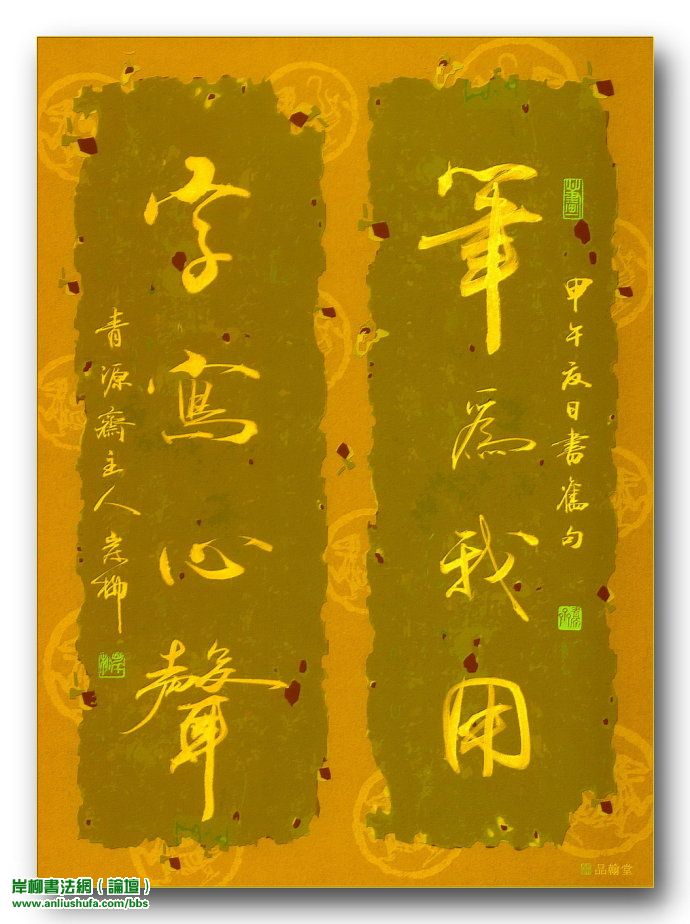 筆爲我用
甲午夜日書舊句
字寫心聲
青源齋主人岸柳
品翰堂
岸柳書法網（論壇）
www.anliushufa.com/bbs